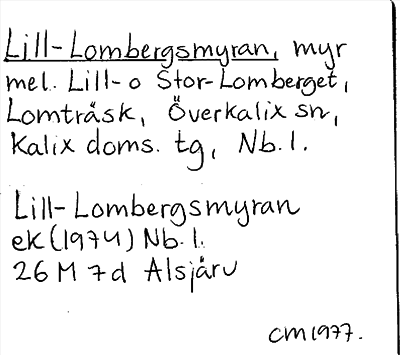 Lill-Lombergsmyran, myr
mel. Lill- o Stor-Lomberget,
Lomträsk, Överkalix sn,
Kalix doms. tg, Nb. l.
Lill-Lombergsmyran
ek (1974) Nb. l.
26 M 7 d Alsjärv
CM 1977.